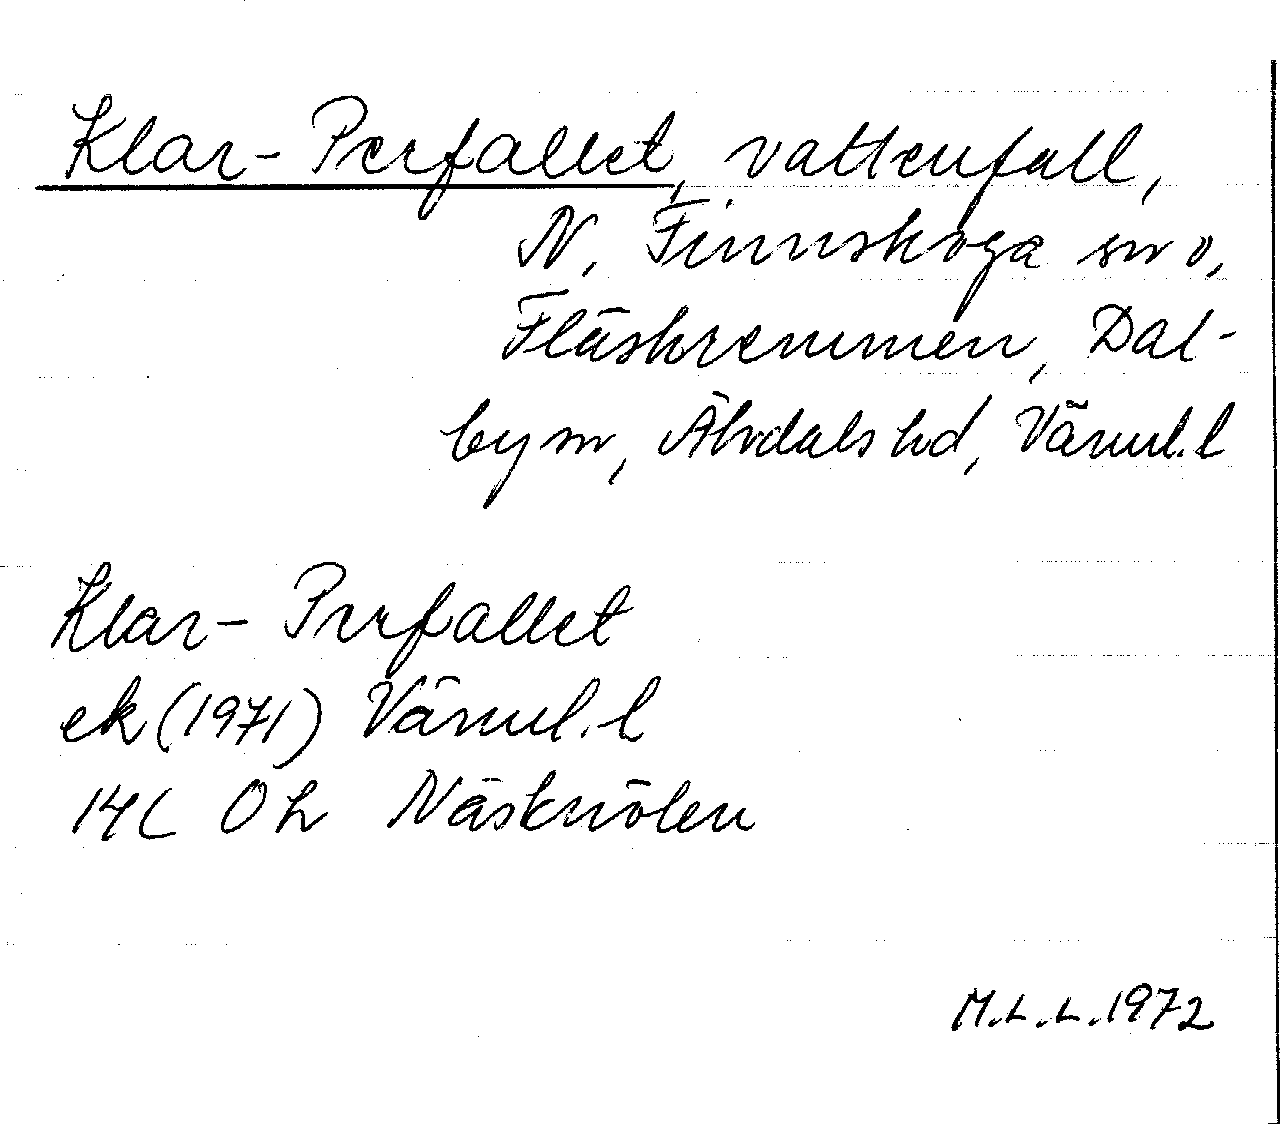 Klar-Perfallet, vattenfall,
N. Finnskoga sn o,
Fläskremmen, Dal-
by sn, Älvdals hd, Värml. l
Klar-Perfallet
ek (1971) Värml. l
14C 0h Näsknölen
M.L.L. 1972